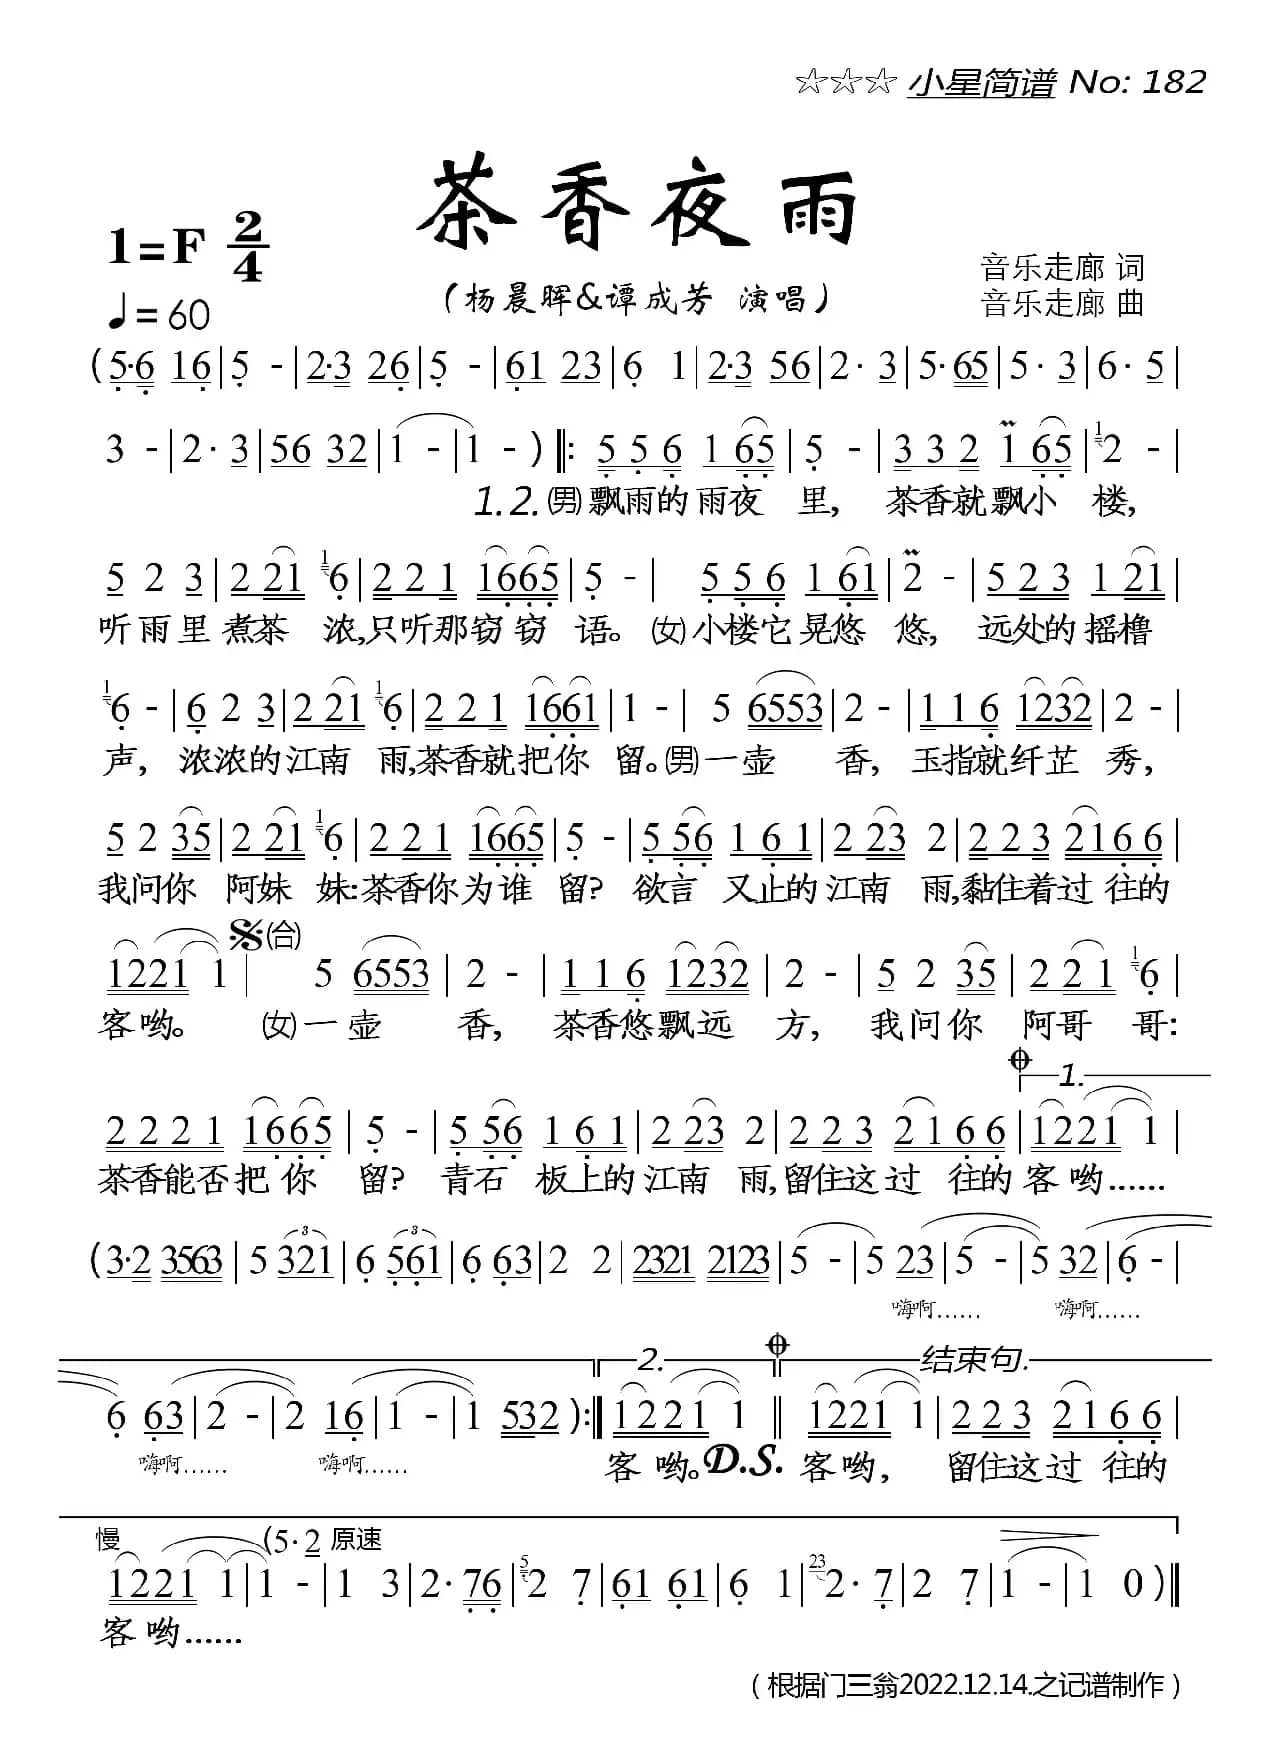 ☆☆☆ 小星简谱 No: 182
茶香夜雨
1=F 2/4
♩=60
（杨晨晖&谭成芳 演唱）
音乐走廊 词
音乐走廊 曲
(5·6 16|5 -|2·3 26|5 -|61 23|6 1|2·3 56|2· 3|5· 65|5· 3|6· 5|
3 -|2· 3|56 32|1 -|1 -)‖: 5 5 6 1 65|5 -|3 3 2 1 65|1 2 -|
1.2.(男)飘雨的雨夜 里, 茶香就飘小 楼,
5 2 3|2 21 1 6|2 2 1 1665|5 -| 5 5 6 1 61|2 -|5 2 3 1 21|
听雨里煮茶 浓,只听那窃窃 语。(女)小楼它晃悠 悠, 远处的摇橹
1 6 -|6 2 3|2 21 1 6|2 2 1 1661|1 -| 5 6553|2 -|1 1 6 1232|2 -|
声, 浓浓的江南 雨,茶香就把你 留。(男)一壶 香, 玉指就纤芷 秀,
5 2 35|2 21 1 6|2 2 1 1665|5 -|5 56 1 6 1|2 23 2|2 2 3 2166|
我问你 阿妹 妹:茶香你为谁 留? 欲言 又止的江南 雨,黏住着过往的
𝄋(合)
1221 1| 5 6553|2 -|1 1 6 1232|2 -|5 2 35|2 2 1 1 6|
客呦。 (女)一壶 香, 茶香悠飘远 方, 我问你 阿哥 哥:
𝄌 1.
2 2 2 1 1665|5 -|5 56 1 6 1|2 23 2|2 2 3 2 1 6 6|1221 1|
茶香能否把你 留? 青石 板上的江南 雨,留住这过 往的客呦......
(3·2 3563|5 321|6 561|6 63|2 2|2321 2123|5 -|5 23|5 -|5 32|6 -|
3 3
嗨啊...... 嗨啊......
2. 𝄌 结束句.
6 63|2 -|2 16|1 -|1 532):‖1221 1‖1221 1|2 2 3 2 1 6 6|
嗨啊...... 嗨啊...... 客呦。D.S. 客呦, 留住这过 往的
慢 (5·2 原速
1221 1|1 -|1 3|2· 76|5 2 7|61 61|6 1|23 2· 7|2 7|1 -|1 0)‖
客呦......
（根据门三翁2022.12.14.之记谱制作）